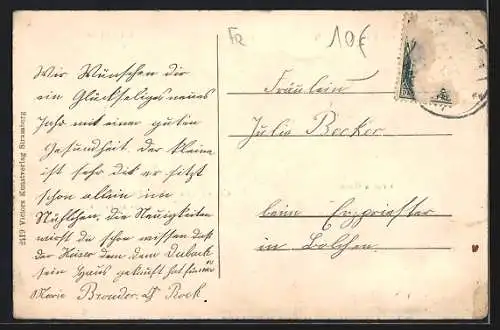 Fr
10€
Wir Wünschen dir
ein Glückseliges neues
Jahr mit einer guten
Gesundheit. Der kleine
ist sehr dick er sitzt
schon allein im
Stühlchen, die Neuigkeiten
wirst du schon wissen daß
der Kaiser dem dem
sein Haus gekauft hat für
Marie
Fräulein
Julie Becker
beim Erzpriester
in Bolchen.
2519 Victors Kunstverlag Strassburg